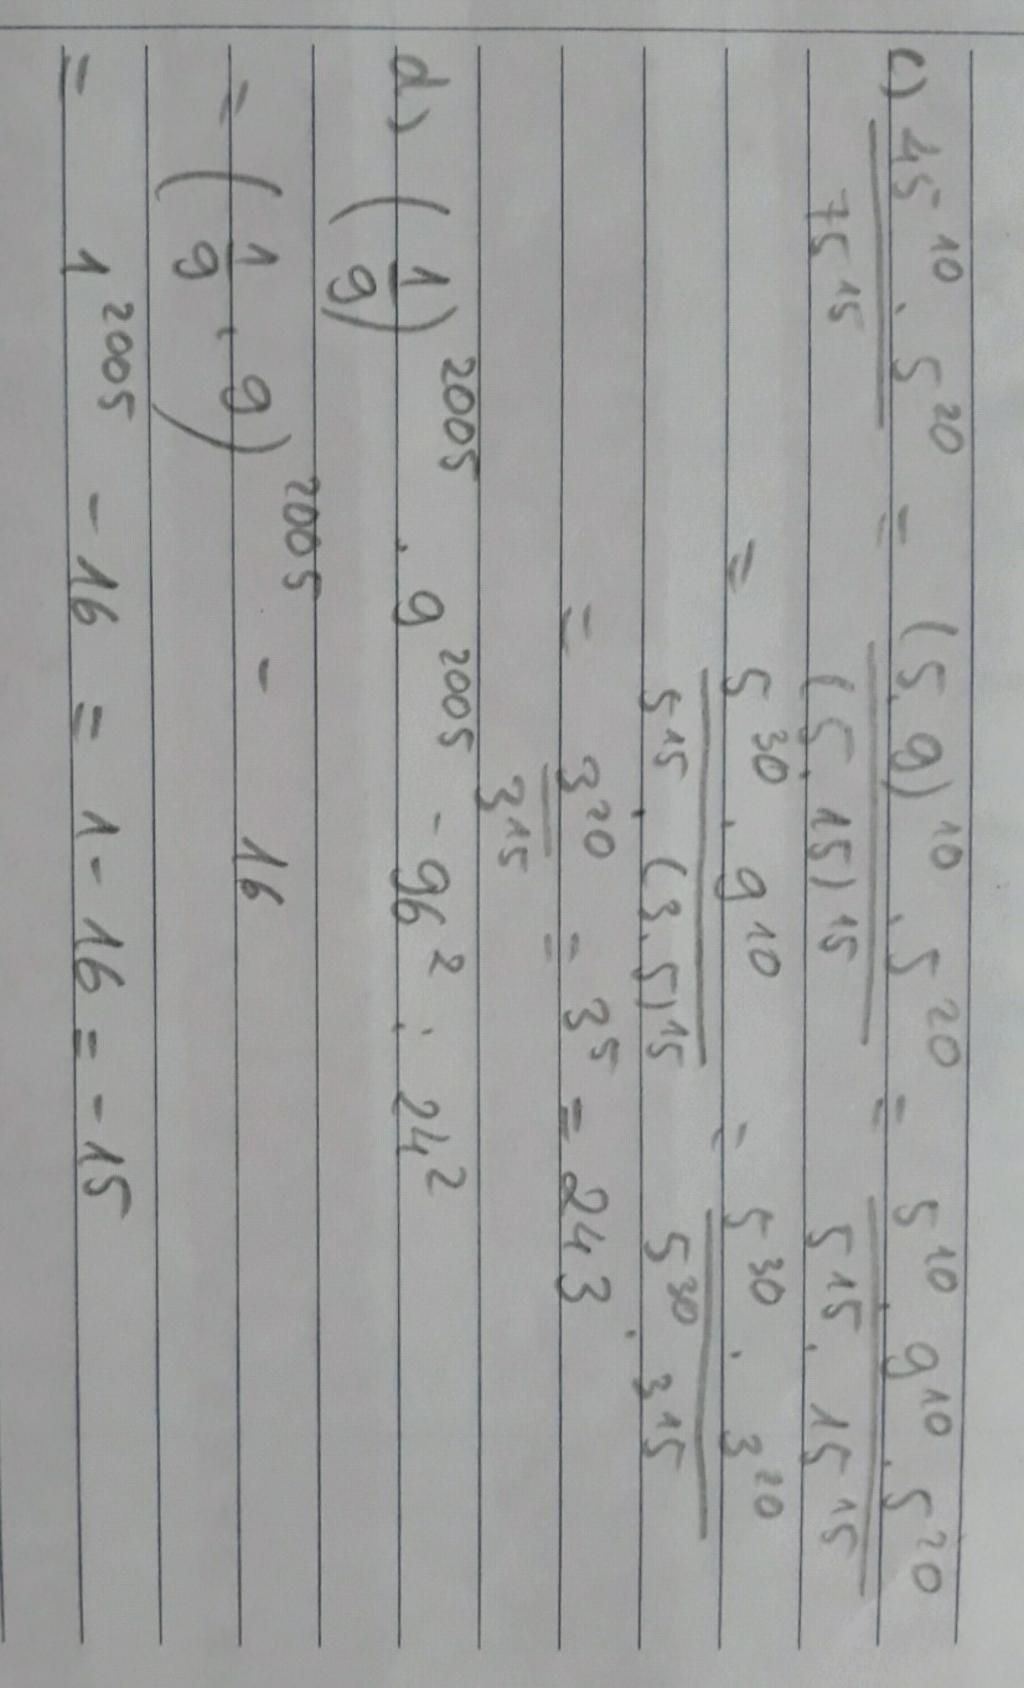 c) 45^10 . 5^20 / 75^15 = (5.9)^10 . 5^20 / (5.15)^15 = 5^10 . 9^10 . 5^20 / 5^15 . 15^15
= 5^30 . 9^10 / 5^15 . (3.5)^15 = 5^30 . 3^20 / 5^30 . 3^15
= 3^20 / 3^15 = 3^5 = 243
d) (1/9)^2005 . 9^2005 - 96^2 : 24^2
= (1/9 . 9)^2005 - 16
= 1^2005 - 16 = 1 - 16 = -15